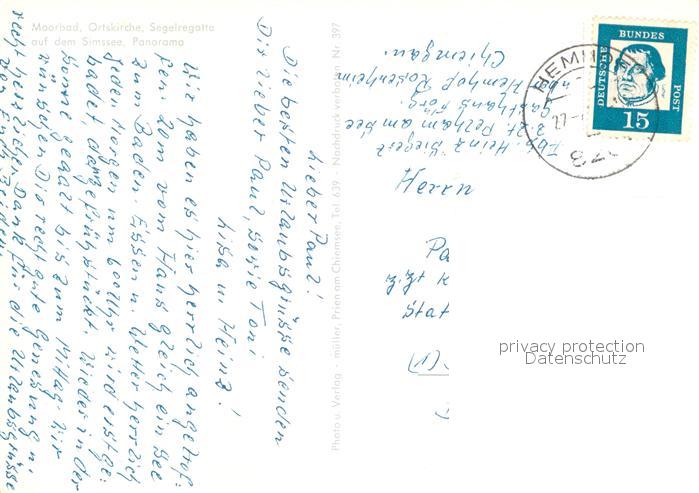 Moorbad, Ortskirche, Segelregatta
auf dem Simssee, Panorama
Lieber Paul!
Die besten Urlaubsgrüsse senden
Dir lieber Paul, sowie Toni
Lisa u. Heinz!
Wir haben es hier herrlich angetrof-
fen. Vom Haus gleich ein See
zum Baden. Essen u. Wetter herrlich
jeden Morgen um 6 00 Uhr wird erst ge-
badet, dann gefrühstückt. Wieder in der
Sonne geaalt bis zum Mittag. Wir
wünschen Dir recht gute Genesung u.
recht herzlichen Dank für die Urlaubsgrüsse
Photo u. Verlag - müller, Prien am Chiemsee, Tel. 639 - Nachdruck verboten Nr. 397
Abs. Heinz Siegert
z. Zt. Pelham am See
Gasthaus
Hemhof Rosenheim
Chiemgau.
DEUTSCHE BUNDES POST
15
HEMH
820
Herrn
Pa
z.Zt K
Stat
privacy protection
Datenschutz